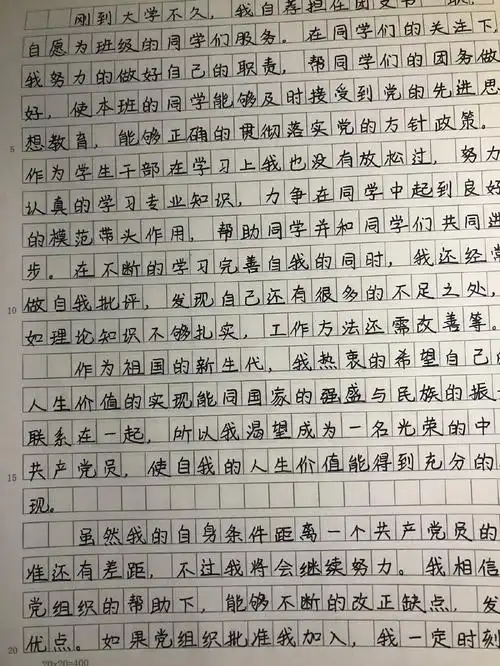 刚到大学不久，我自荐担任团支书一职，
自愿为班级的同学们服务。在同学们的关注下，
我努力的做好自己的职责，帮同学们的团务做
好，使本班的同学能够及时接受到党的先进思
5 想教育，能够正确的贯彻落实党的方针政策。
作为学生干部在学习上我也没有放松过，努力
认真的学习专业知识，力争在同学中起到良好
的模范带头作用，帮助同学并和同学们共同进
步。在不断的学习完善自我的同时，我还经常
10 做自我批评，发现自己还有很多的不足之处，
如理论知识不够扎实，工作方法还需改善等。
作为祖国的新生代，我热衷的希望自己的
人生价值的实现能同国家的强盛与民族的振
联系在一起，所以我渴望成为一名光荣的中
15 共产党员，使自我的人生价值能得到充分的
现。
虽然我的自身条件距离一个共产党员的
准还有差距，不过我将会继续努力。我相信
党组织的帮助下，能够不断的改正缺点，发
20 优点。如果党组织批准我加入，我一定时刻
20×20=400